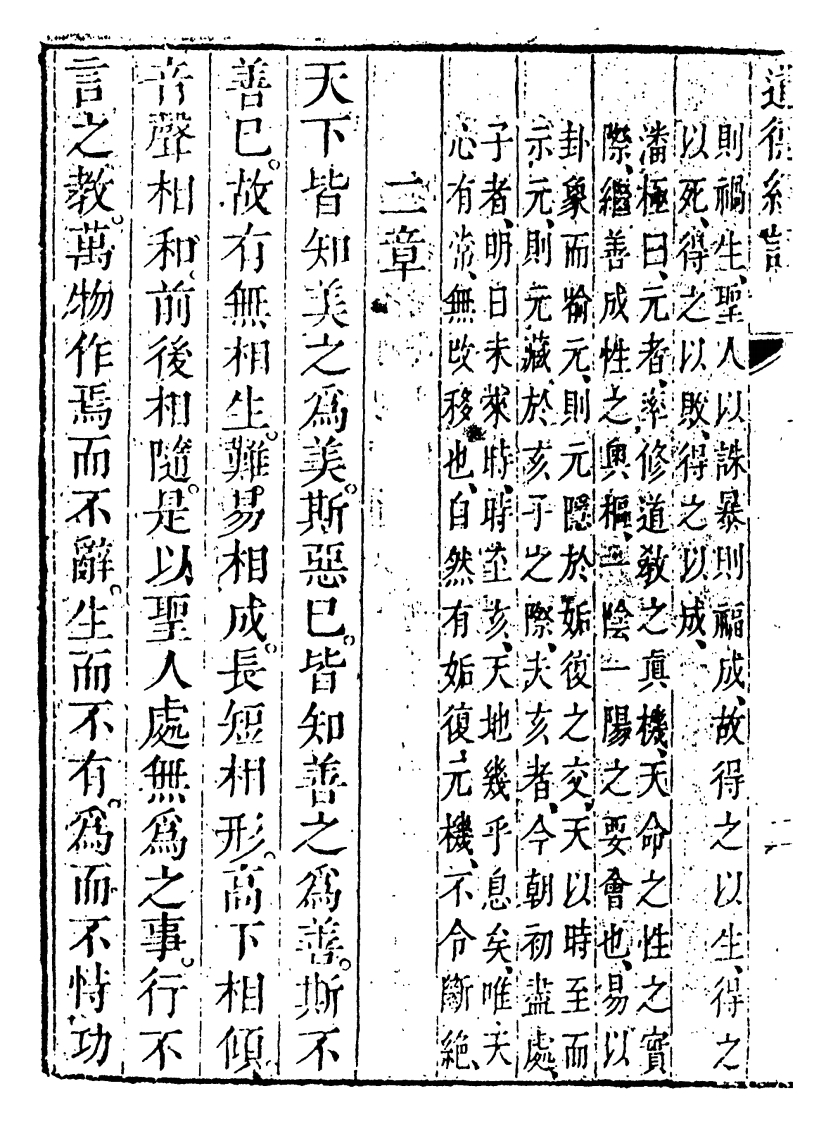 道德經註
則禍生、聖人以誅暴則福成、故得之以生、得之
以死、得之以敗、得之以成、
潘極曰、元者、率修道敎之眞機、天命之性之實
際、繼善成性之奧樞、一陰一陽之要會也、易以
卦象而喻元、則元隱於姤復之交、天以時至而
示元、則元藏於亥子之際、夫亥者、今朝初盡處、
子者、明日未來時、時至亥、天地幾乎息矣、唯天
心有常、無改移也、自然有姤復、元機、不令斷絕、
二章
天下皆知美之爲美。斯惡已。皆知善之爲善。斯不
善已。故有無相生。難易相成。長短相形。高下相傾。
音聲相和。前後相隨。是以聖人處無爲之事。行不
言之教。萬物作焉而不辭。生而不有。爲而不恃。功
二